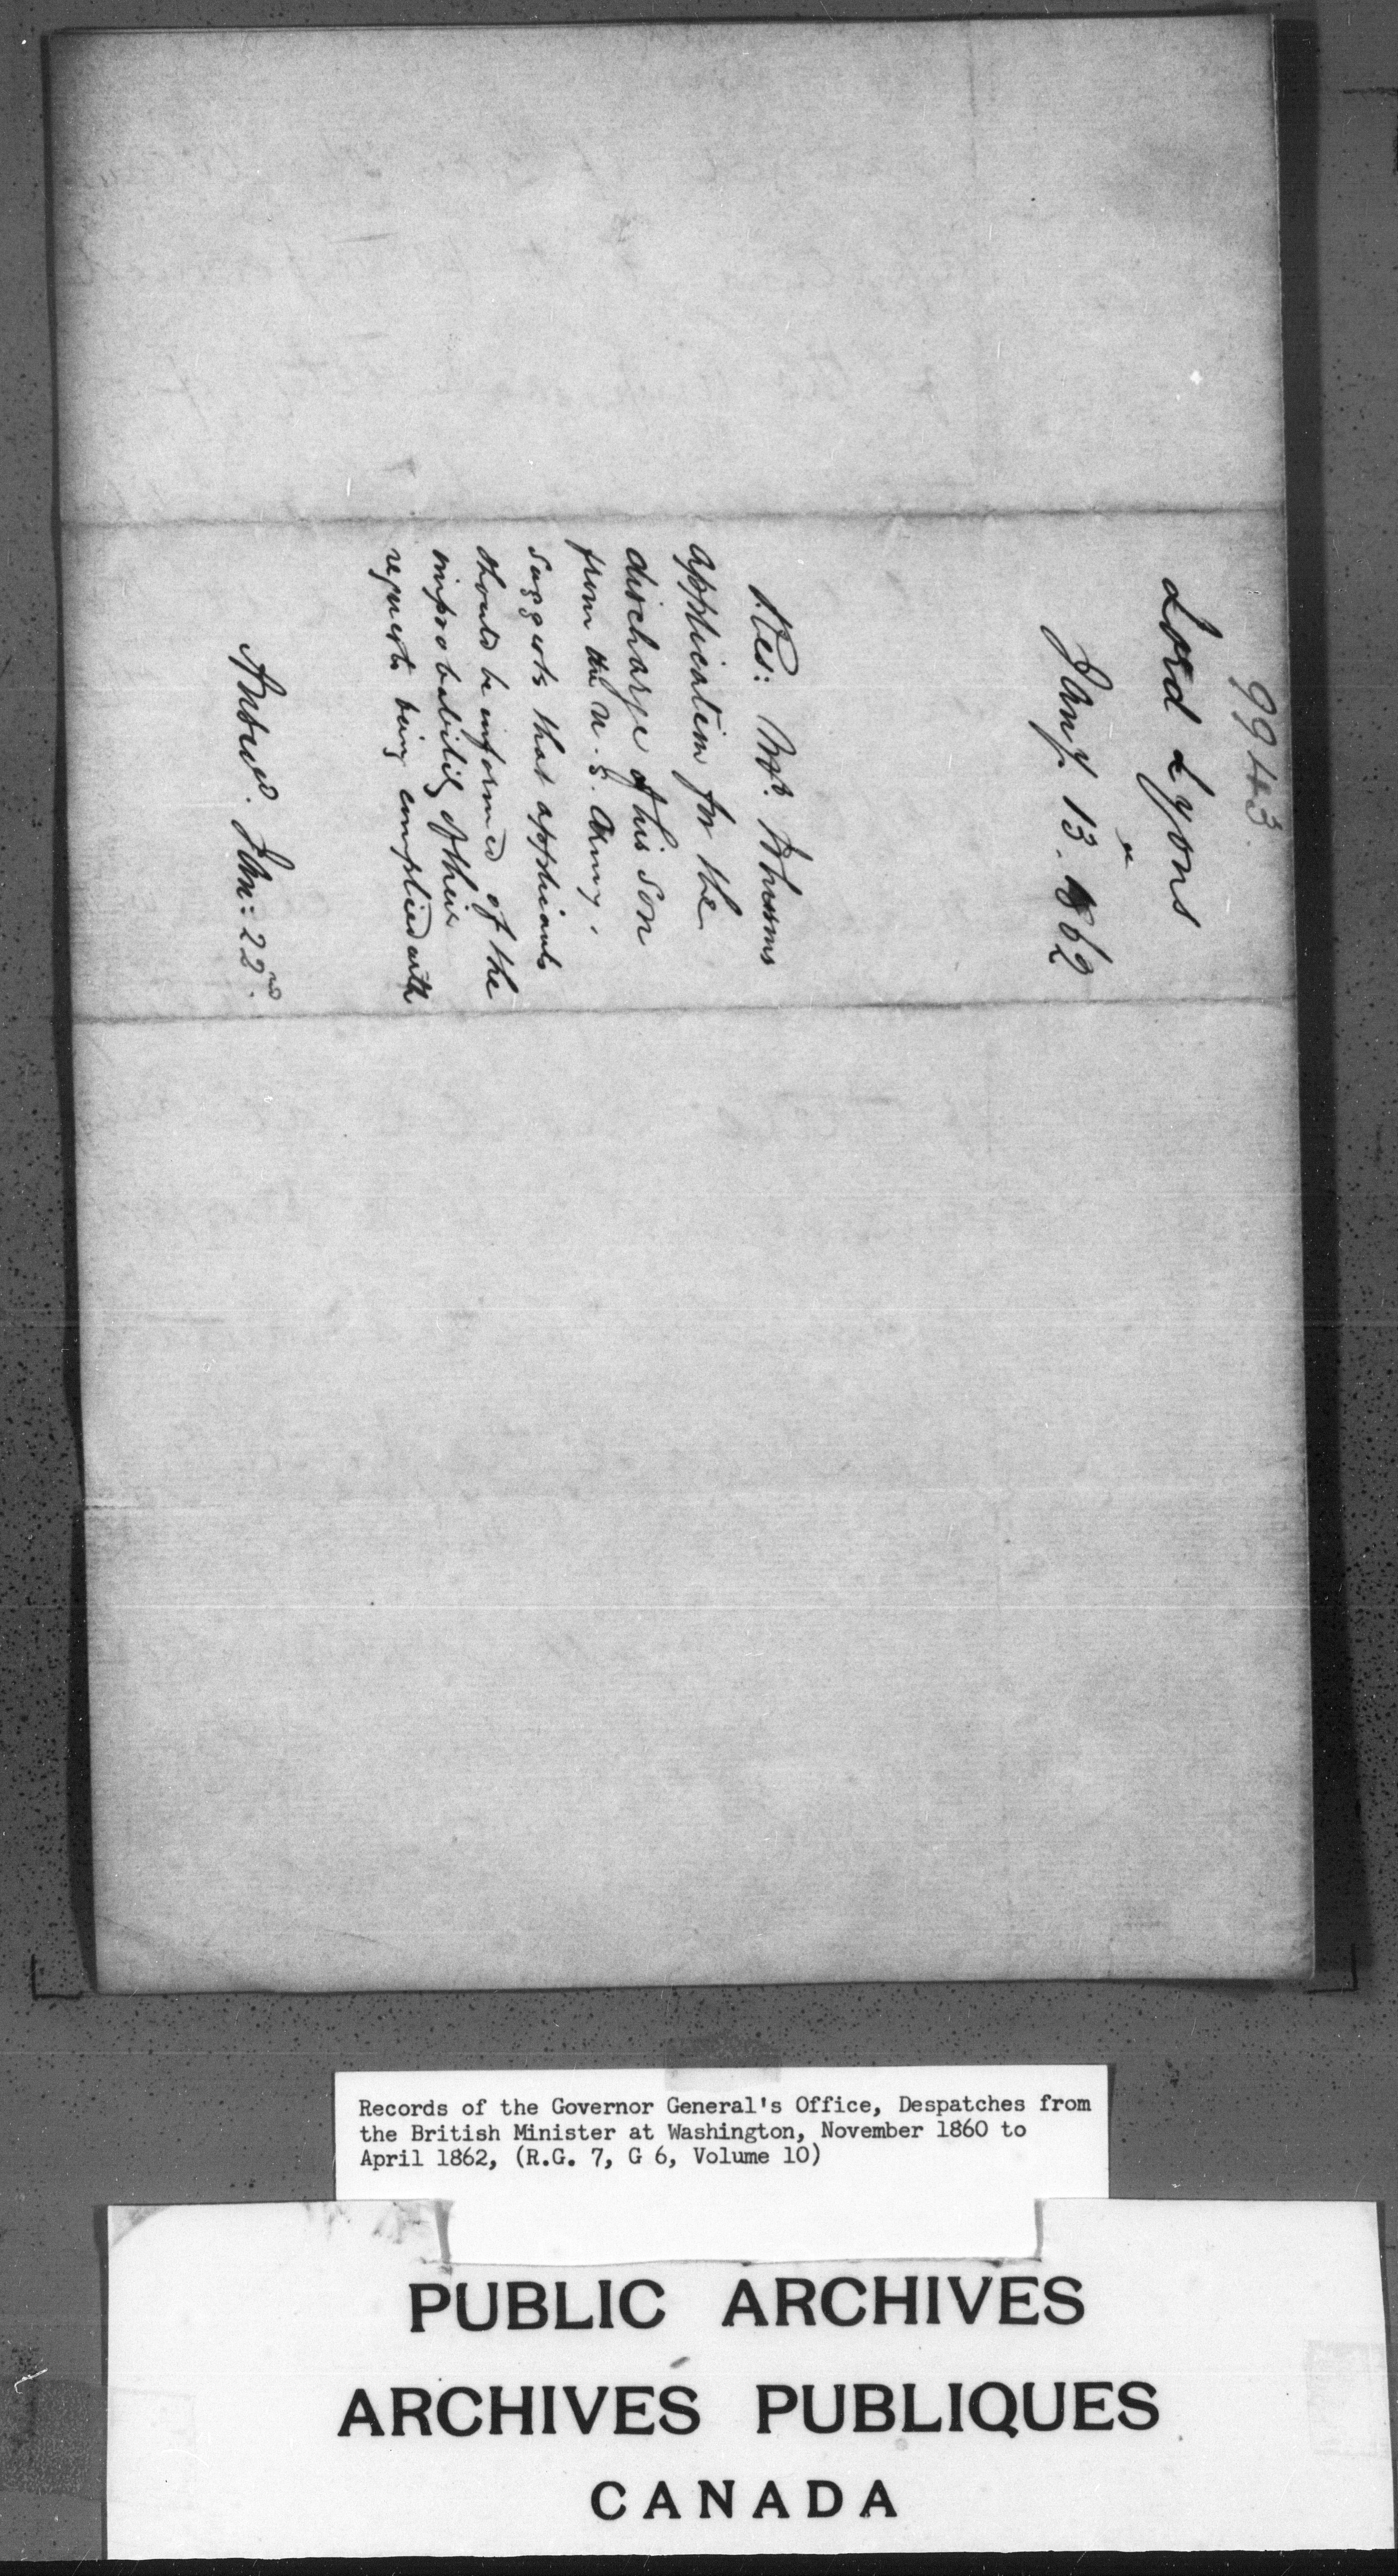 9943.
Lord Lyons
Jany. 13. 1862
Res: Mr. Johnsons
application for the
discharge of his son
from the U.S. Army,
suggests that applicants
should be informed of the
improbability of their
requests being complied with
Answd. Jan: 22nd.
Records of the Governor General's Office, Despatches from
the British Minister at Washington, November 1860 to
April 1862, (R.G. 7, G 6, Volume 10)
PUBLIC ARCHIVES
ARCHIVES PUBLIQUES
CANADA